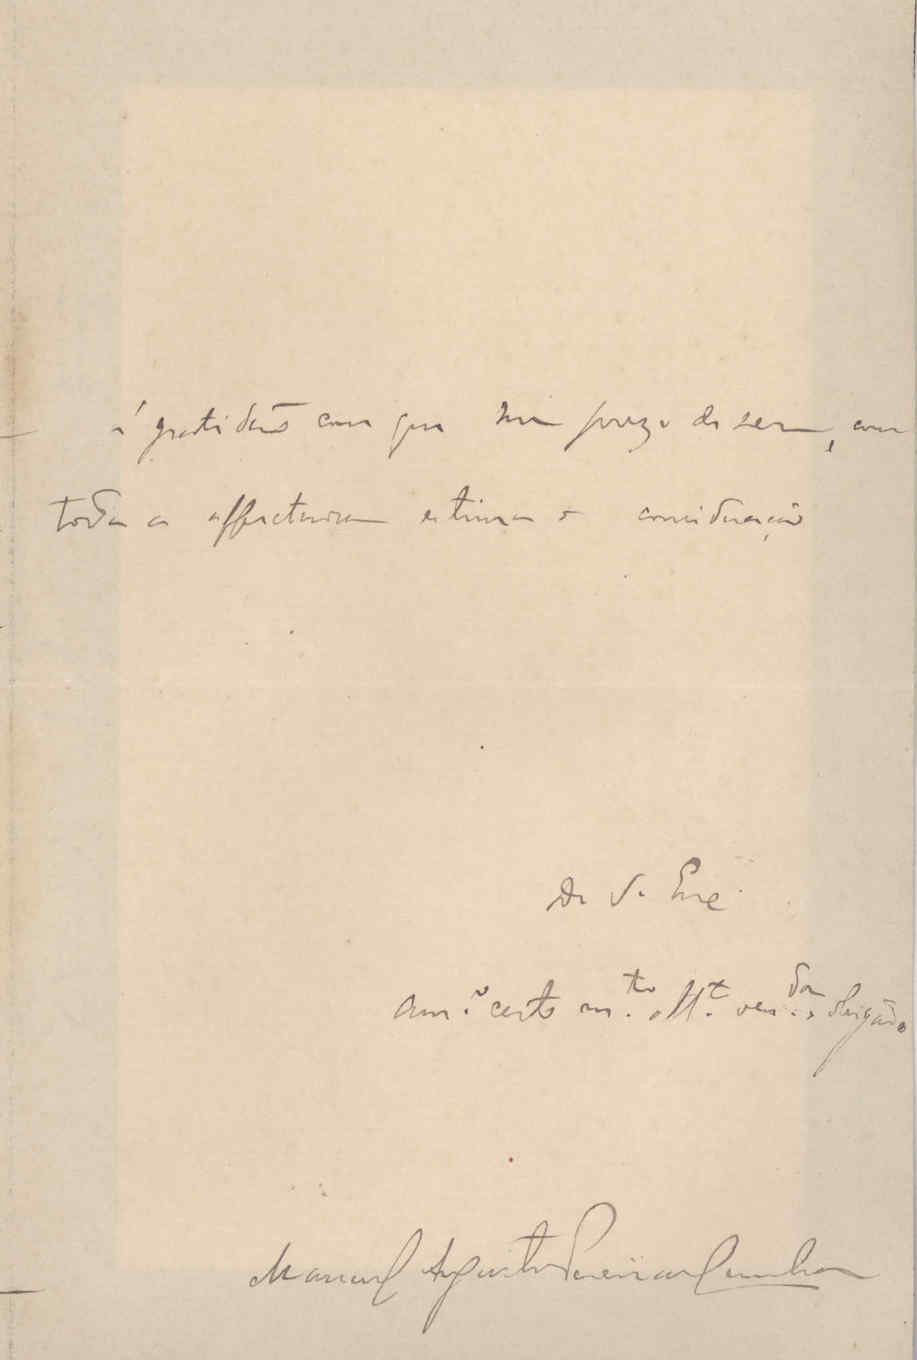 á gratidão com que me prezo de ser, com
toda a affectuosa estima e consideração
De V. Exc.ª
Am.º certo m.to att.º ven.dor e obrigado
Manuel Augusto Pereira e Cunha